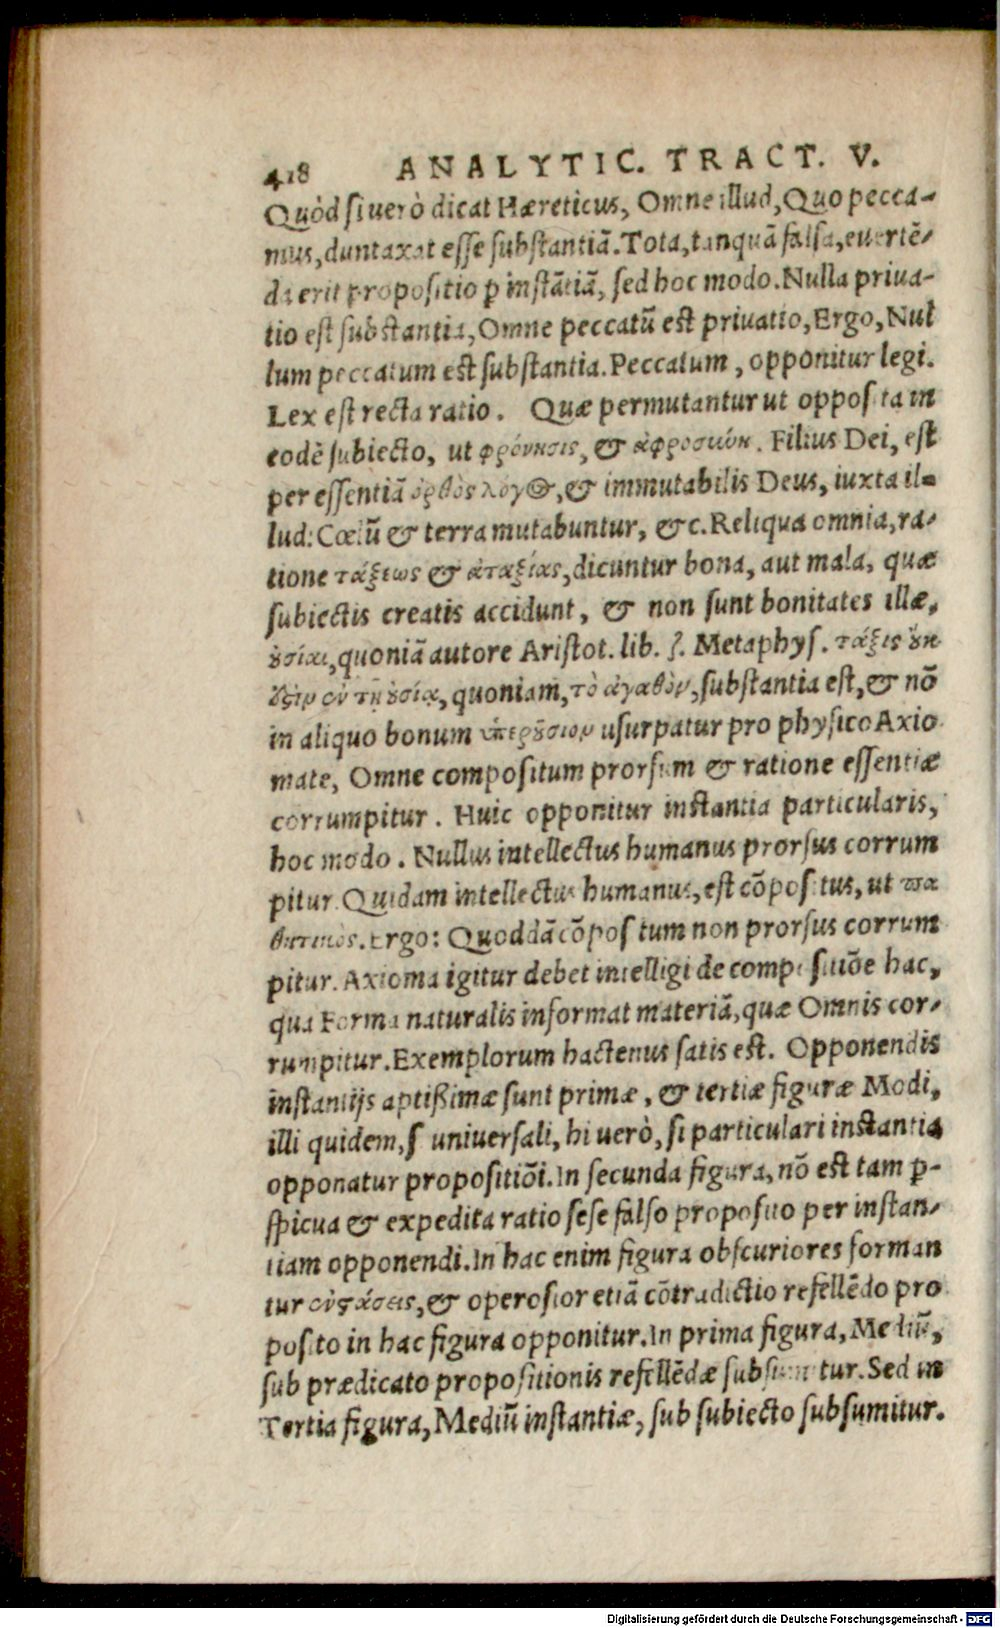 418 ANALYTIC. TRACT. V.
Quòd si uerò dicat Hæreticus, Omne illud, Quo pecca-
mus, duntaxat esse substantiã. Tota, tanquã falsa, euertẽ-
da erit propositio ꝑ instãtiã, sed hoc modo. Nulla priua-
tio est substantia, Omne peccatũ est priuatio, Ergo, Nul
lum peccatum est substantia. Peccatum, opponitur legi.
Lex est recta ratio. Quæ permutantur ut opposita in
eodẽ subiecto, ut φρόνησις, & ἀφροσύνη. Filius Dei, est
per essentiã ὀρθὸς λόγος, & immutabilis Deus, iuxta il-
lud: Cœlũ & terra mutabuntur, &c. Reliqua omnia, ra-
tione τάξεως & ἀταξίας, dicuntur bona, aut mala, quæ
subiectis creatis accidunt, & non sunt bonitates illæ,
ȣσίαι, quoniã autore Aristot. lib. Metaphys. τάξις ȣκ
ἔςιν ἐν τῇ ȣσίᾳ, quoniam, τὸ ἀγαθὸν, substantia est, & nõ
in aliquo bonum ὑπερȣ́σιον usurpatur pro physico Axio
mate, Omne compositum prorsum & ratione essentiæ
corrumpitur. Huic opponitur instantia particularis,
hoc modo. Nullus intellectus humanus prorsus corrum
pitur. Quidam intellectus humanus, est cõpositus, ut πα
θητικὸς. Ergo: Quoddã cõpositum non prorsus corrum
pitur. Axioma igitur debet intelligi de compositiõe hac,
qua Forma naturalis informat materiã, quæ Omnis cor-
rumpitur. Exemplorum hactenus satis est. Opponendis
instantijs aptißimæ sunt primæ, & tertiæ figuræ Modi,
illi quidem, si uniuersali, hi uerò, si particulari instantia
opponatur propositiõi. In secunda figura, nõ est tam ꝑ-
spicua & expedita ratio sese falso proposito per instan-
tiam opponendi. In hac enim figura obscuriores forman
tur ἐνςάσεις, & operosior etiã cõtradictio refellẽdo pro
posito in hac figura opponitur. In prima figura, Mediũ,
sub prædicato propositionis refellẽdæ subsumitur. Sed in
Tertia figura, Mediũ instantiæ, sub subiecto subsumitur.
Digitalisierung gefördert durch die Deutsche Forschungsgemeinschaft - DFG